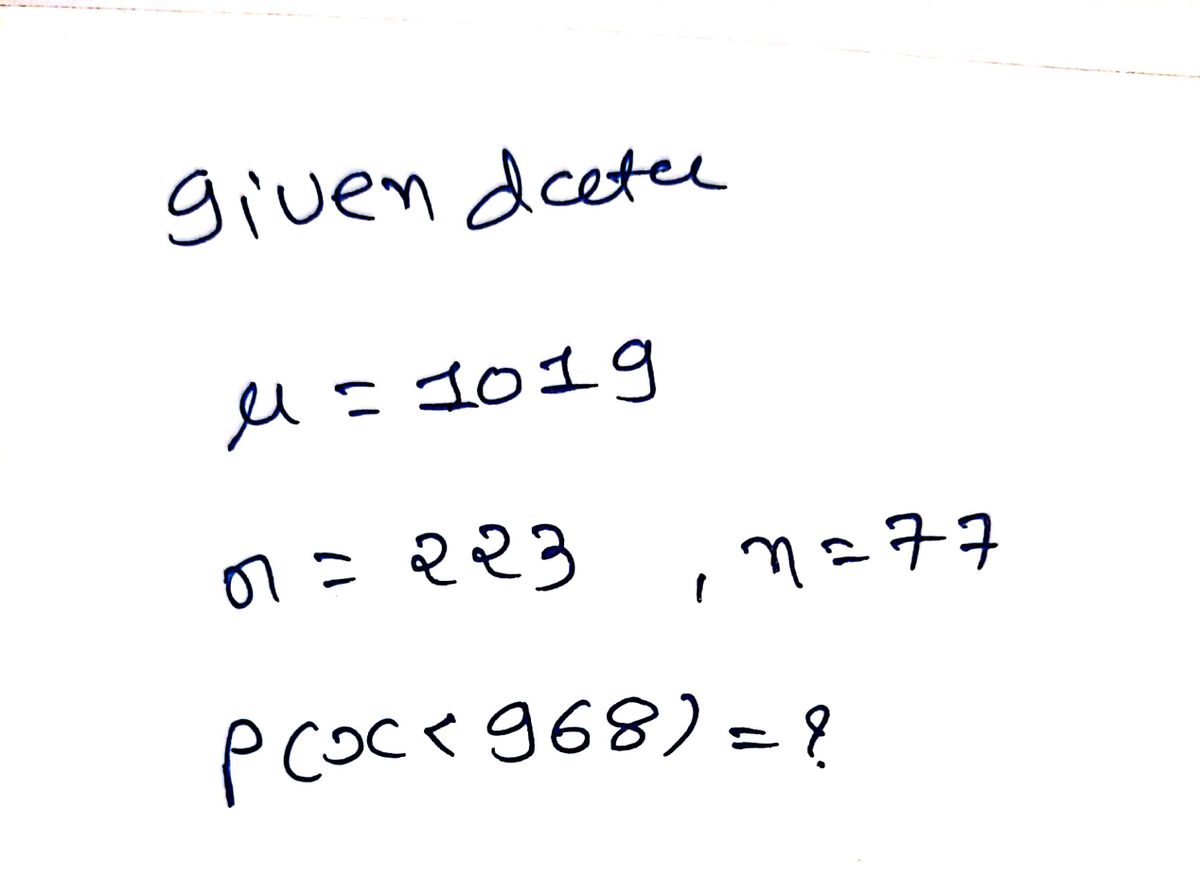 given data
μ = 1019
σ = 223 , n = 77
P(x < 968) = ?